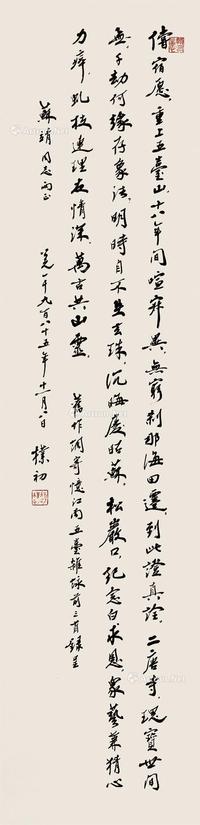 償宿愿，重上五臺山。十八年間喧寂異，無窮刹那海田遷，到此證真詮。二唐寺，瑰寶世間
無。千劫何緣存象法，明時自不失玄珠，沉晦慶昭蘇。松巖口，紀念白求恩。眾藝兼精心
力瘁，虬枝連理友情深，萬古共山靈。 舊作調寄憶江南五臺雜詠前三首錄呈
蘇靖同志兩正 公元一千九百八十五年十二月八日 樸初